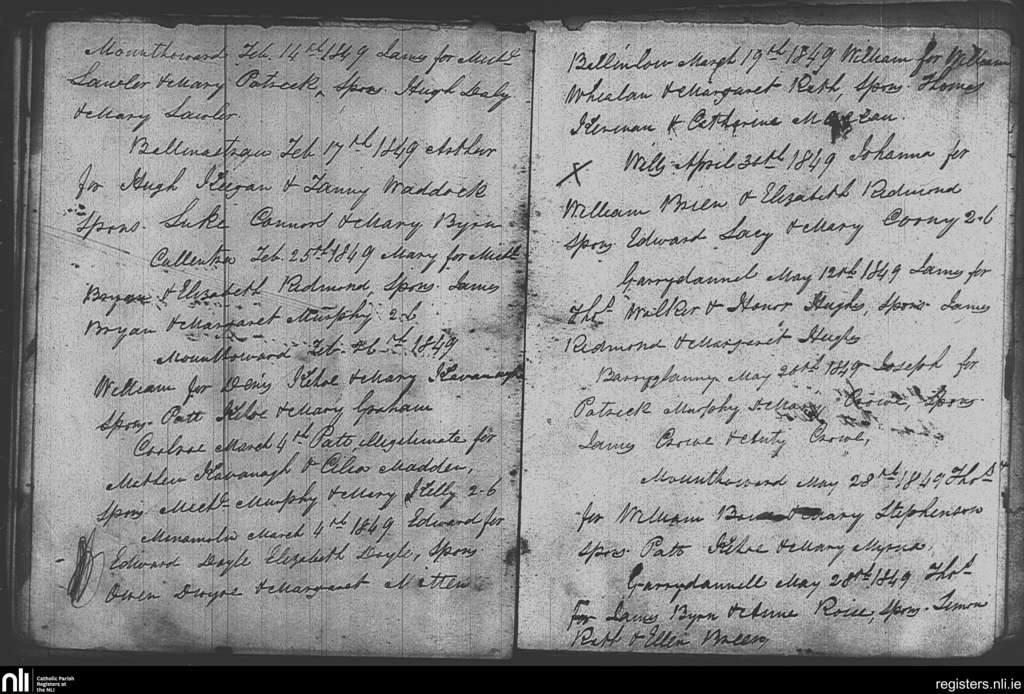 Mounthoward Feb. 14th 1849 James for Michl
Lawler & Mary Patrick, Spons. Hugh Daly
& Mary Lawler.
Ballinastraw Feb 17th 1849 Arthur
for Hugh Keegan & Fanny Waddock
Spons. Luke Connors & Mary Byrn
Cullentra Feb. 25th 1849 Mary for Michl
Bryan & Elizabeth Redmond Spons. James
Bryan & Margaret Murphy 2-6
Mounthoward Feb. 26th 1849
William for Denis Kehoe & Mary Kavanagh
Spons. Patt Kehoe & Mary Graham
March 4th Patt, illegitimate for
Mathew Kavanagh & Celia Madden,
Spons Michl Murphy & Mary Kelly 2-6
March 4th 1849 Edward for
Edward Doyle Elizabeth Doyle, Spons
Owen Dwyre & Margaret Mitten
Ballinlow March 19th 1849 William for William
Whealan & Margaret Rath, Spons. Thomas
Kernan & Catherine
X Wells April 30th 1849 Johanna for
William Brien & Elizabeth Redmond
Spons Edward Lacy & Mary Coony 2-6
Garrydannel May 12th 1849 James for
Thos. Walker & Honor Hughes, Spons. James
Redmond & Margaret Hughes
Barryglanny May 20th 1849 Joseph for
Patrick Murphy & Mary Crowe, Spons.
James Crowe & Crowe,
Mounthoward May 28th 1849 Thos.
for William & Mary Stephenson
Spons. Patt Kehoe & Mary
Garrydannell May 28th 1849 Thos.
For James Byrn & Anne Spons. Simon
Ratt & Ellen Breen
nli
Catholic Parish
Registers at
the NLI
registers.nli.ie